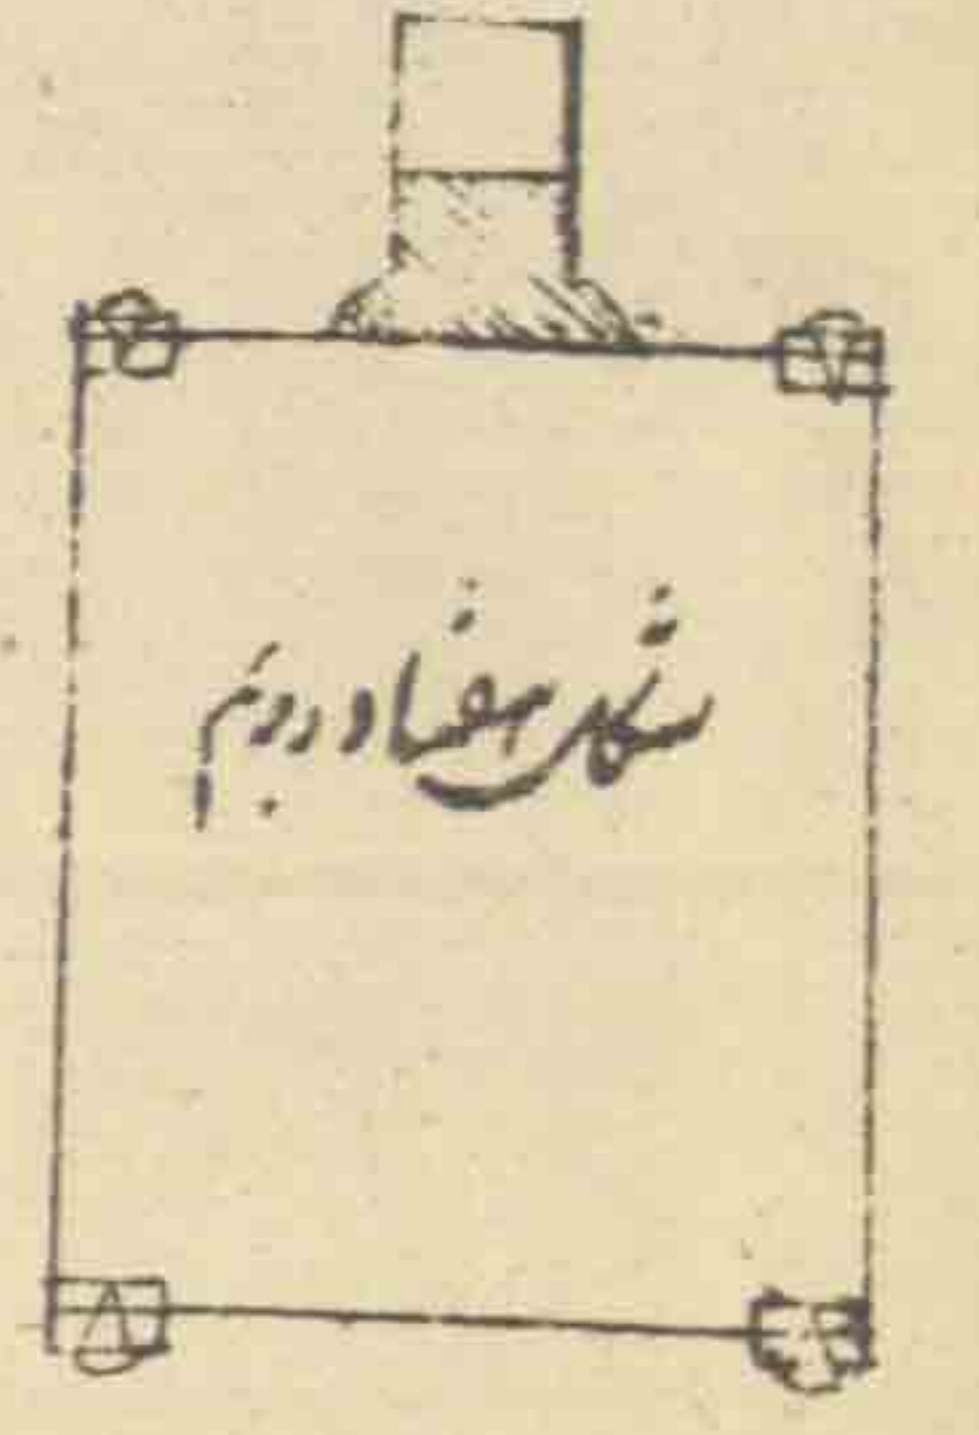 شکل هفتاد و دویم